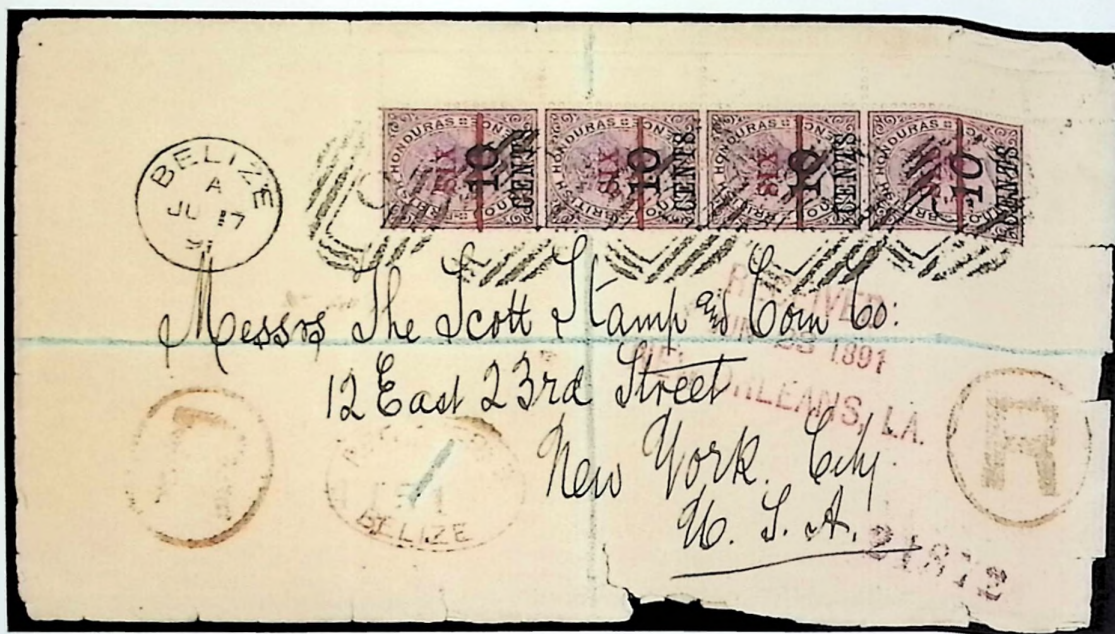 BRITISH HONDURAS SIX 10 CENTS
BRITISH HONDURAS SIX 10 CENTS
BRITISH HONDURAS SIX 10 CENTS
BRITISH HONDURAS SIX 10 CENTS
BELIZE
A
JU 17
91
Messrs The Scott Stamp and Coin Co:
12 East 23rd Street
New York. City.
U. S. A.
RECEIVED
JUN 23 1891
NEW ORLEANS, LA.
R
R
BELIZE
21872